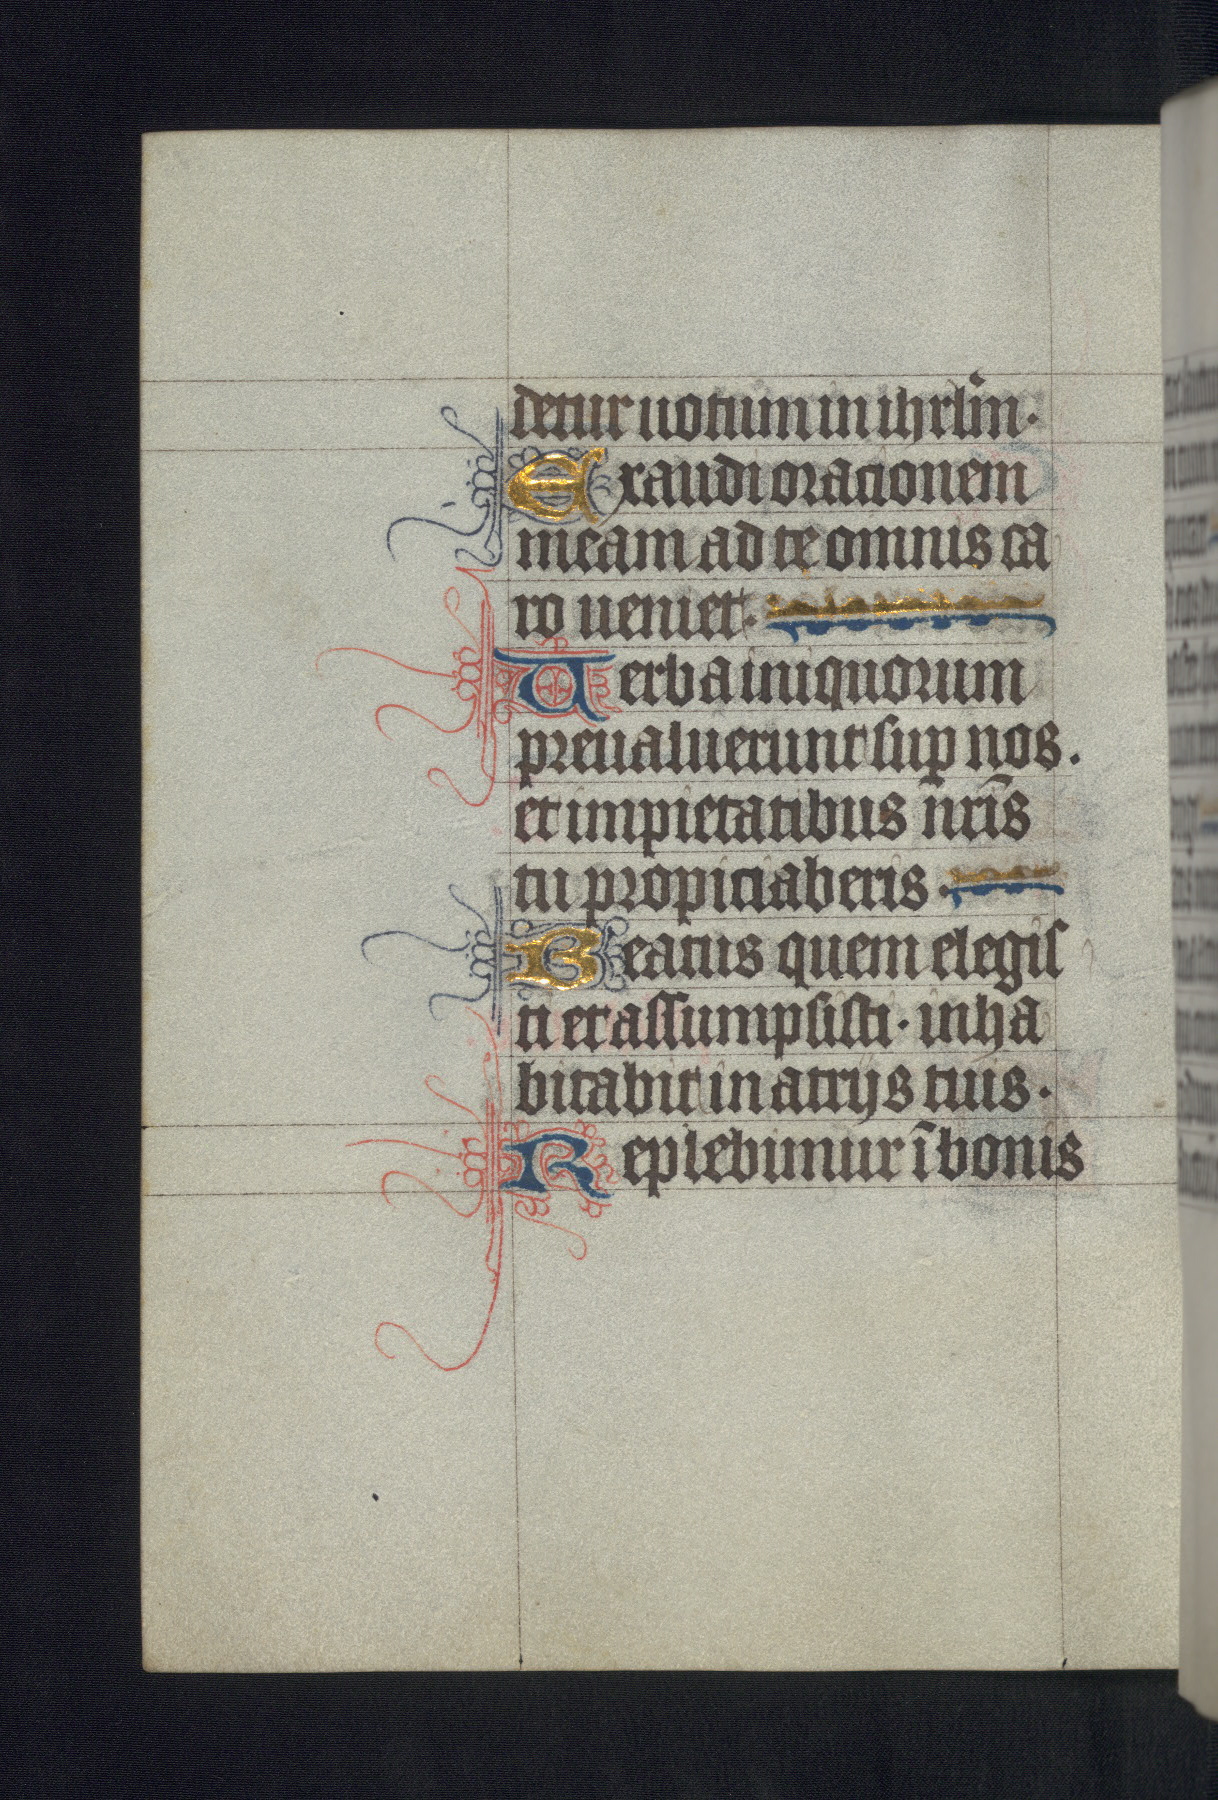 detur uotum in ihrl̄m·
Exaudi orationem
meam ad te omnis ca
ro ueniet·
Uerba iniquorum
preualuerunt sup̄ nos.
et impietatibus n̄ris
tu propiciaberis·
Beatus quem elegiſ
ti et aſſumpſiſti· inha
bitabit in atrijs tuis·
Replebimur ī bonis